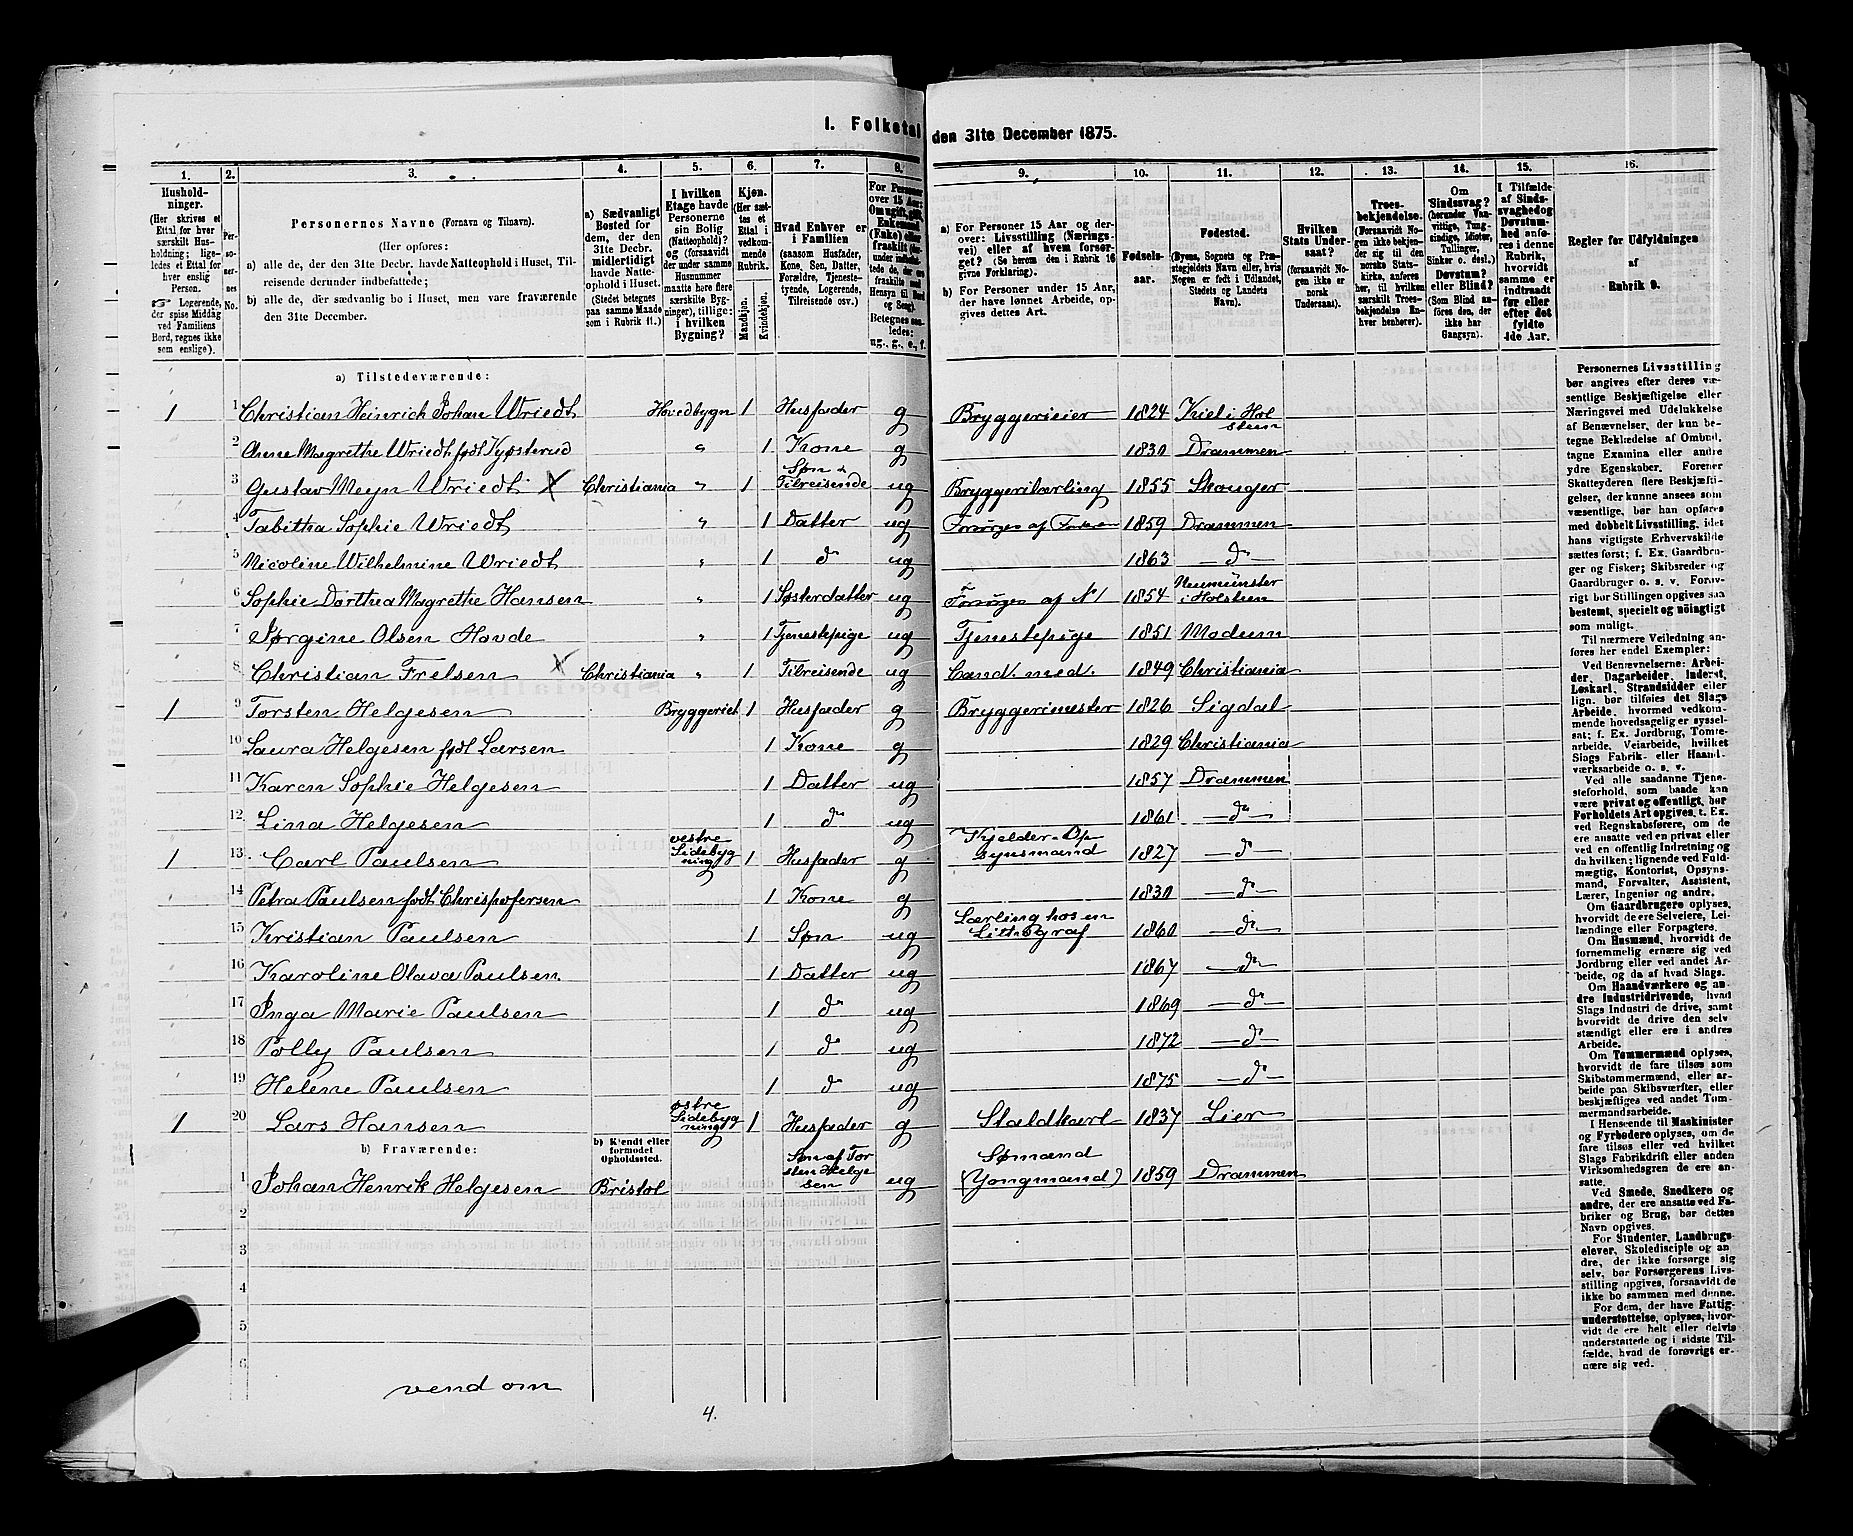 I. Folketal den 31te December 1875.
1. 2. 3. 4. 5. 6. 7. 8. 9. 10. 11. 12. 13. 14. 15. 16.
Hushold-
ninger.
(Her skrives et
Ettal for hver
særskilt Hus-
holdning; lige-
ledes et Ettal for
hver enslig
Person.
☞ Logerende,
der spise Middag
ved Familiens
Bord, regnes ikke
som enslige).
Per-
so-
ner-
nes
No.
Personernes Navne (Fornavn og Tilnavn).
(Her opføres:
a) alle de, der den 31te Decbr. havde Natteophold i Huset, Til-
reisende derunder indbefattede;
b) alle de, der sædvanlig bo i Huset, men vare fraværende
den 31te December.
a) Sædvanligt
Bosted for
dem, der den
31te Decbr.
midlertidigt
havde Natte-
ophold i Huset.
(Stedet betegnes
paa samme Maade
som i Rubrik 11.)
I hvilken
Etage havde
Personerne
sin Bolig
(Natteophold)?
og (forsaavidt
der under samme
Husnummer
maatte høre flere
særskilte Byg-
ninger), tillige:
i hvilken
Bygning?
Kjøn.
(Her sæt-
tes et
Ettal i
vedkom-
mende
Rubrik.
Mandkjøn.
Kvindekjøn.
Hvad Enhver er
i Familien
(saasom Husfader,
Kone, Søn, Datter,
Forældre, Tjeneste-
tyende, Logerende,
Tilreisende osv.)
For Personer
over 15 Aar:
Om ugift, gift,
Enkemand
(Enke) eller
fraskilt
Betegnes saa-
ledes:
ug., g., e., f.
a) For Personer 15 Aar og der-
over: Livsstilling (Nærings-
vei) eller af hvem forsør-
get? (Se herom den i Rubrik 16
givne Forklaring).
b) For Personer under 15 Aar,
der have lønnet Arbeide, op-
gives dettes Art.
Fødsels-
aar.
Fødested.
(Byens, Sognets og Præ-
stegjeldets Navn eller, hvis
Nogen er født i Udlandet,
Stedets og Landets
Navn).
Hvilken
Stats Under-
saat?
(forsaavidt No-
gen ikke er
norsk
Undersaat).
Troes-
bekjendelse.
(Forsaavidt No-
gen ikke bekjen-
der sig til den
norske Stats-
kirke, anføres
her, til hvilken
særskilt Troes-
bekjendelse En-
hver henhører).
Om
Sindssvag?
(herunder Van-
vittige, Tung-
sindige, Idioter,
Tullinger,
Sinker o. desl.)
Døvstum?
eller Blind?
(Som Blind an-
føres den, der
ikke har
Gangsyn).
I Tilfælde
af Sinds-
svaghed og
Døvstum-
hed anfø-
res i denne
Rubrik,
hvorvidt
samme er
indtraadt
før eller
efter det
fyldte
4de Aar.
Regler for Udfyldningen
af
Rubrik 9.
a) Tilstedeværende:
1 1 Christian Heinrich Johan Wriedt Hovedbygn 1 Husfader g Bryggerieier 1824 Kiel i Hol
steen
2 Anne Magrethe Wriedt født Kjøsterud " 1 Kone g 1830 Drammen
3 Gustav Meyn Wriedt X Christiania " 1 Søn &
Tilreisende ug Bryggerilærling 1855 Skouger
4 Tabitha Sophie Wriedt " 1 Datter ug Forsørges af Faderen 1859 Drammen
5 Nicoline Wilhelmine Wriedt " 1 do ug 1863 — do —
6 Sophie Dorthea Magrethe Hansen " 1 Søsterdatter ug Forsørges af N 1 1854 Neumünster
i Holsten
7 Jørgine Olsen Hovde " 1 Tjenestepige ug Tjenestepige 1851 Modum
8 Christian Frelsen X Christiania " 1 Tilreisende ug Cand. med. 1849 Christiania
1 9 Torsten Helgesen Bryggeriet 1 Husfader g Bryggerimester 1826 Sigdal
10 Laura Helgesen født Larsen 1 Kone g 1829 Christiania
11 Karen Sophie Helgesen 1 Datter ug 1857 Drammen
12 Lina Helgesen 1 do ug 1861 — do —
1 13 Carl Paulsen vestre
Sidebyg
ning 1 Husfader g Kjelder-Op
synsmand 1827 — do —
14 Petra Paulsen født Christofersen 1 Kone g 1830 — do —
15 Kristian Paulsen 1 Søn ug Lærling hos en
Lithograf 1860 — do —
16 Karoline Olava Paulsen 1 Datter ug 1867 — do —
17 Inga Marie Paulsen 1 do ug 1869 — do —
18 Polly Paulsen 1 do ug 1872 — do —
19 Helene Paulsen 1 do ug 1875 — do —
1 20 Lars Hansen østre
Sidebyg
ning 1 Husfader g Staldkarl 1837 Lier
b) Fraværende:
b) Kjendt eller
formodet
Opholdssted.
1 Johan Henrik Helgesen Bristol Søn af Tor
sten Helge
sen ug Sømand
(Yongmand) 1859 Drammen
2
3
4
5
6
vend om
4.
Personernes Livsstilling
bør angives efter deres væ-
sentlige Beskjæftigelse eller
Næringsvei med Udelukkelse
af Benævnelser, der kun be-
tegne Beklædelse af Ombud,
tagne Examina eller andre
ydre Egenskaber. Forener
Skatteyderen flere Beskjæfti-
gelser, der kunne ansees som
væsentlige, bør han opføres
med dobbelt Livsstilling, idet
hans vigtigste Erhvervskilde
sættes først; f. Ex. Gaardbru-
ger og Fisker; Skibsreder og
Gaardbruger o. s. v. Forøv-
rigt bør Stillingen opgives saa
bestemt, specielt og nöiagtigt
som muligt.
Til nærmere Veiledning an-
føres her endel Exempler:
Ved Benævnelserne: Arbei-
der, Dagarbeider, Inderst,
Løskarl, Strandsidder eller
lign. bør tilføies det Slags
Arbeide, hvormed vedkom-
mende hovedsagelig er syssel-
sat; f. Ex. Jordbrug, Tomte-
arbeide, Veiarbeide, hvilket
Slags Fabrik- eller Haand-
værksarbeide o. s. v.
Ved alle saadanne Tjene-
steforhold, som baade kan
være privat og offentligt, bør
Forholdets Art opgives, t. Ex.
ved Regnskabsførere, om de
ere ansatte ved en privat eller
ved en offentlig Indretning og
da hvilken; lignende ved Fuld-
mægtig, Kontorist, Opsyns-
mand, Forvalter, Assistent,
Lærer, Ingeniør og andre.
Om Gaardbrugere oplyses,
hvorvidt de ere Selveiere, Lei-
lændinge eller Forpagtere.
Om Husmænd, hvorvidt de
fornemmelig ernære sig ved
Jordbrug eller ved andet Ar-
beide, og da af hvad Slags.
Om Haandværkere og an-
dre Industridrivende, hvad
Slags Industri de drive, samt
hvorvidt de drive den selv-
stændigt eller ere i andres
Arbeide.
Om Tømmermænd oplyses,
hvorvidt de fare tilsøs som
Skibstømmermænd, eller ar-
beide paa Skibsværfter, eller
beskjæftiges ved andet Tøm-
mermandsarbeide.
I Henseende til Maskinister
og Fyrbødere oplyses, om de
fare tilsøs eller ved hvilket
Slags Fabrikdrift eller anden
Virksomhedsgren de ere an-
satte.
Ved Smede, Snedkere og
andre, der ere ansatte ved Fa-
briker og Brug, bør dettes
Navn opgives.
For Studenter, Landbrugs-
elever, Skoledisciple og an-
dre, der ikke forsørge sig
selv, bør Forsørgerens Livs-
stilling opgives, forsaavidt de
ikke bo sammen med denne.
For dem, der have Fattig-
understøttelse, oplyses, hvor-
vidt de ere helt eller delvis
understøttede og i sidste Til-
fælde, hvad de forøvrigt er-
nære sig ved.